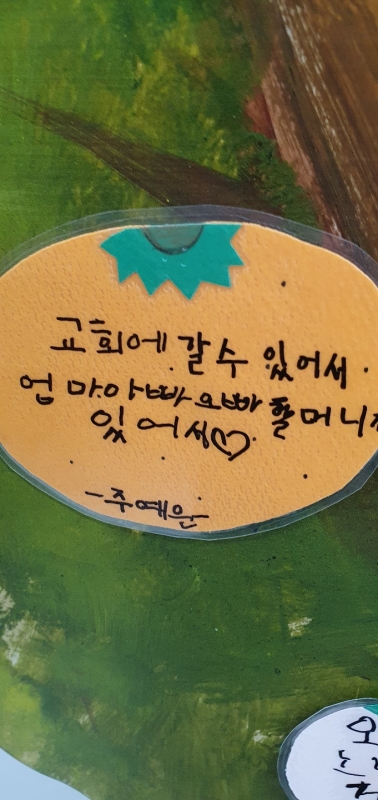 교회에 갈수 있어서
엄마아빠 오빠 할머니가
있어서♡
-주예은-
오